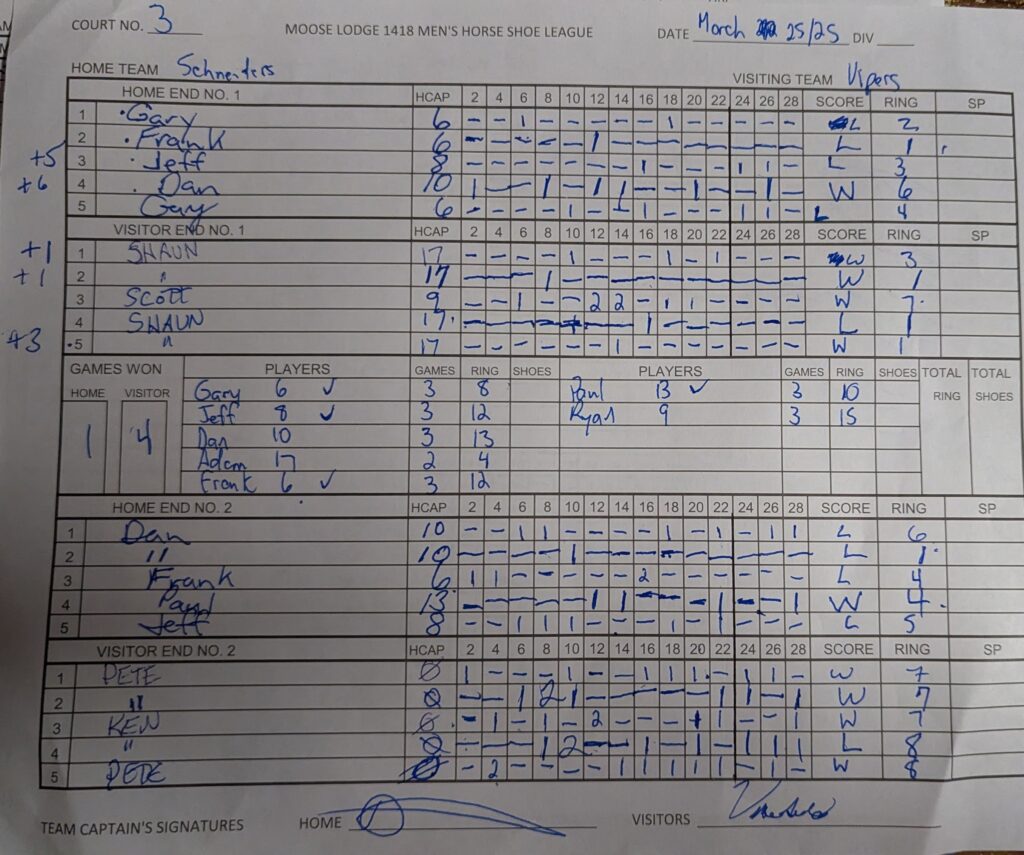 COURT NO. 3 MOOSE LODGE 1418 MEN'S HORSE SHOE LEAGUE DATE March 25/25 DIV
HOME TEAM Schneiders VISITING TEAM Vipers
HOME END NO. 1 HCAP 2 4 6 8 10 12 14 16 18 20 22 24 26 28 SCORE RING SP
1 Gary 6 - - 1 - - - - - 1 - - - - - L 2
2 Frank 6 - - - - - 1 - - - - - - - - L 1
+5 3 Jeff 8 - - - - - - - 1 - - - 1 1 - L 3
+6 4 Dan 10 1 - - 1 - 1 1 - - 1 - - 1 - W 6
5 Gary 6 - - - - 1 - - 1 - - - 1 1 - L 4
VISITOR END NO. 1 HCAP 2 4 6 8 10 12 14 16 18 20 22 24 26 28 SCORE RING SP
+1 1 SHAUN 17 - - - - 1 - - - 1 - 1 - - - W 3
+1 2 " 17 - - - 1 - - - - - - - - - - W 1
3 Scott 9 - - 1 - - 2 2 - 1 1 - - - - W 7
4 SHAUN 17 - - - - - - - 1 - - - - - - L 1
+3 5 " 17 - - - - - - 1 - - - - - - - W 1
GAMES WON PLAYERS GAMES RING SHOES PLAYERS GAMES RING SHOES TOTAL RING TOTAL SHOES
HOME VISITOR
1 4
Gary 6 ✓ 3 8 Paul 13 ✓ 3 10
Jeff 8 ✓ 3 12 Ryan 9 3 15
Dan 10 3 13
Adam 17 2 4
Frank 6 ✓ 3 12
HOME END NO. 2 HCAP 2 4 6 8 10 12 14 16 18 20 22 24 26 28 SCORE RING SP
1 Dan 10 - - 1 1 - - - - 1 - 1 - 1 1 L 6
2 " 10 - - - - 1 - - - - - - - - - L 1
3 Frank 6 1 1 - - - - - 2 - - - - - - L 4
4 Paul 13 - - - - - 1 1 - - - 1 - - 1 W 4
5 Jeff 8 - - 1 1 1 - - - - - 1 - - 1 L 5
VISITOR END NO. 2 HCAP 2 4 6 8 10 12 14 16 18 20 22 24 26 28 SCORE RING SP
1 PETE 0 1 - - - 1 - - 1 1 1 - 1 1 - W 7
2 " 0 - - 1 2 1 - - - - - 1 1 - 1 W 7
3 KEN 0 - 1 - 1 - 2 - - - 1 1 - - 1 W 7
4 " 0 - - - 1 2 - - 1 - 1 - 1 1 1 L 8
5 PETE 0 - 2 - - - - 1 1 1 1 1 - 1 - W 8
TEAM CAPTAIN'S SIGNATURES HOME VISITORS